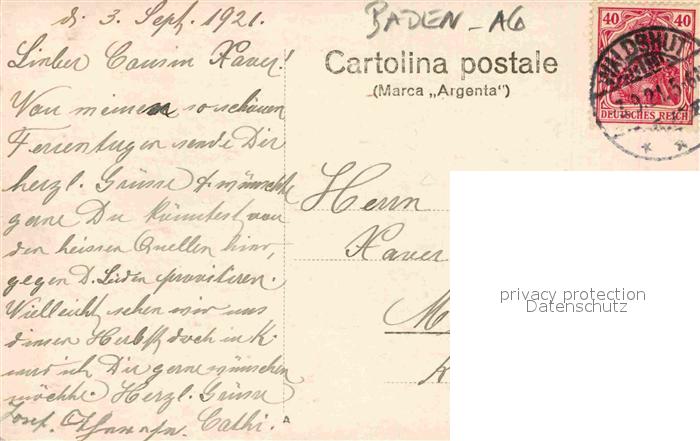 d. 3. Sept. 1921.
Lieber Cousin Xaver!
Von meinen so schönen
Ferientagen sende Dir
herzl. Grüsse & wünschte
gerne Du könntest von
den heissen Quellen hier,
gegen D. Leiden provitiren.
Vielleicht sehen wir uns
diesen Herbst doch in K
und ich Dir gerne wünschen
möchte. Herzl. Grüsse
Josef. Cathi.
BADEN - AG
Cartolina postale
(Marca „Argenta")
Herrn
Xaver
M
K
40 40
DEUTSCHES REICH
WALDSHUT
privacy protection
Datenschutz